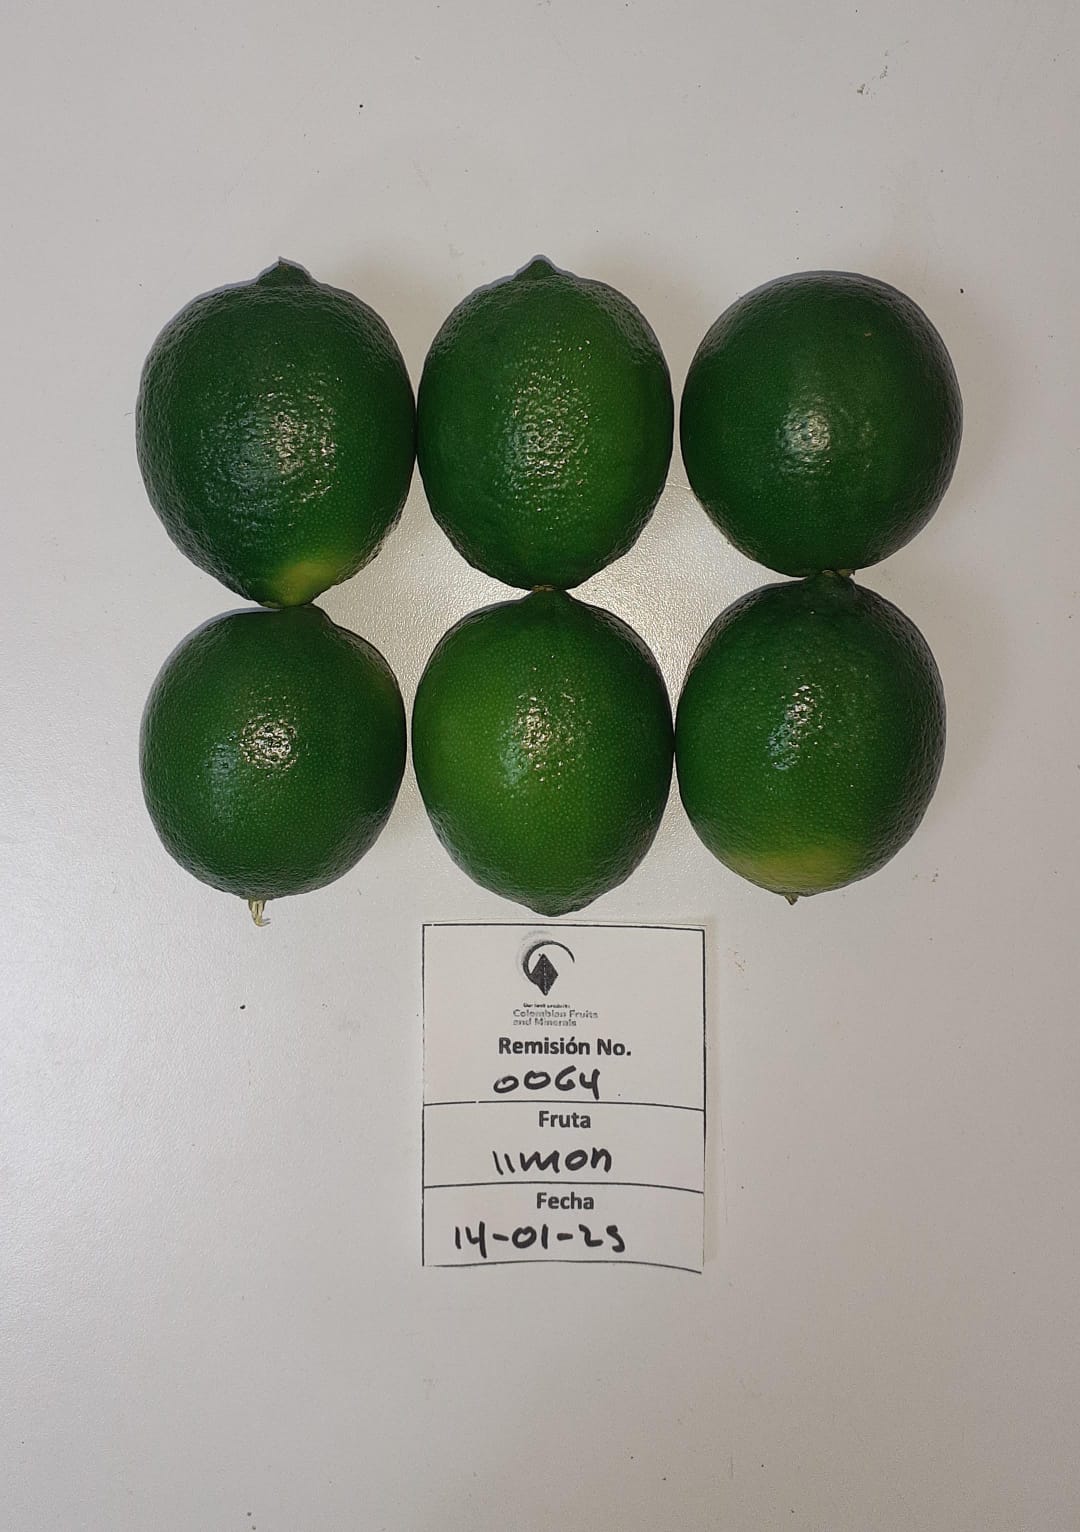 Our best products
Colombian Fruits
and Minerals
Remisión No.
0064
Fruta
limon
Fecha
14-01-25